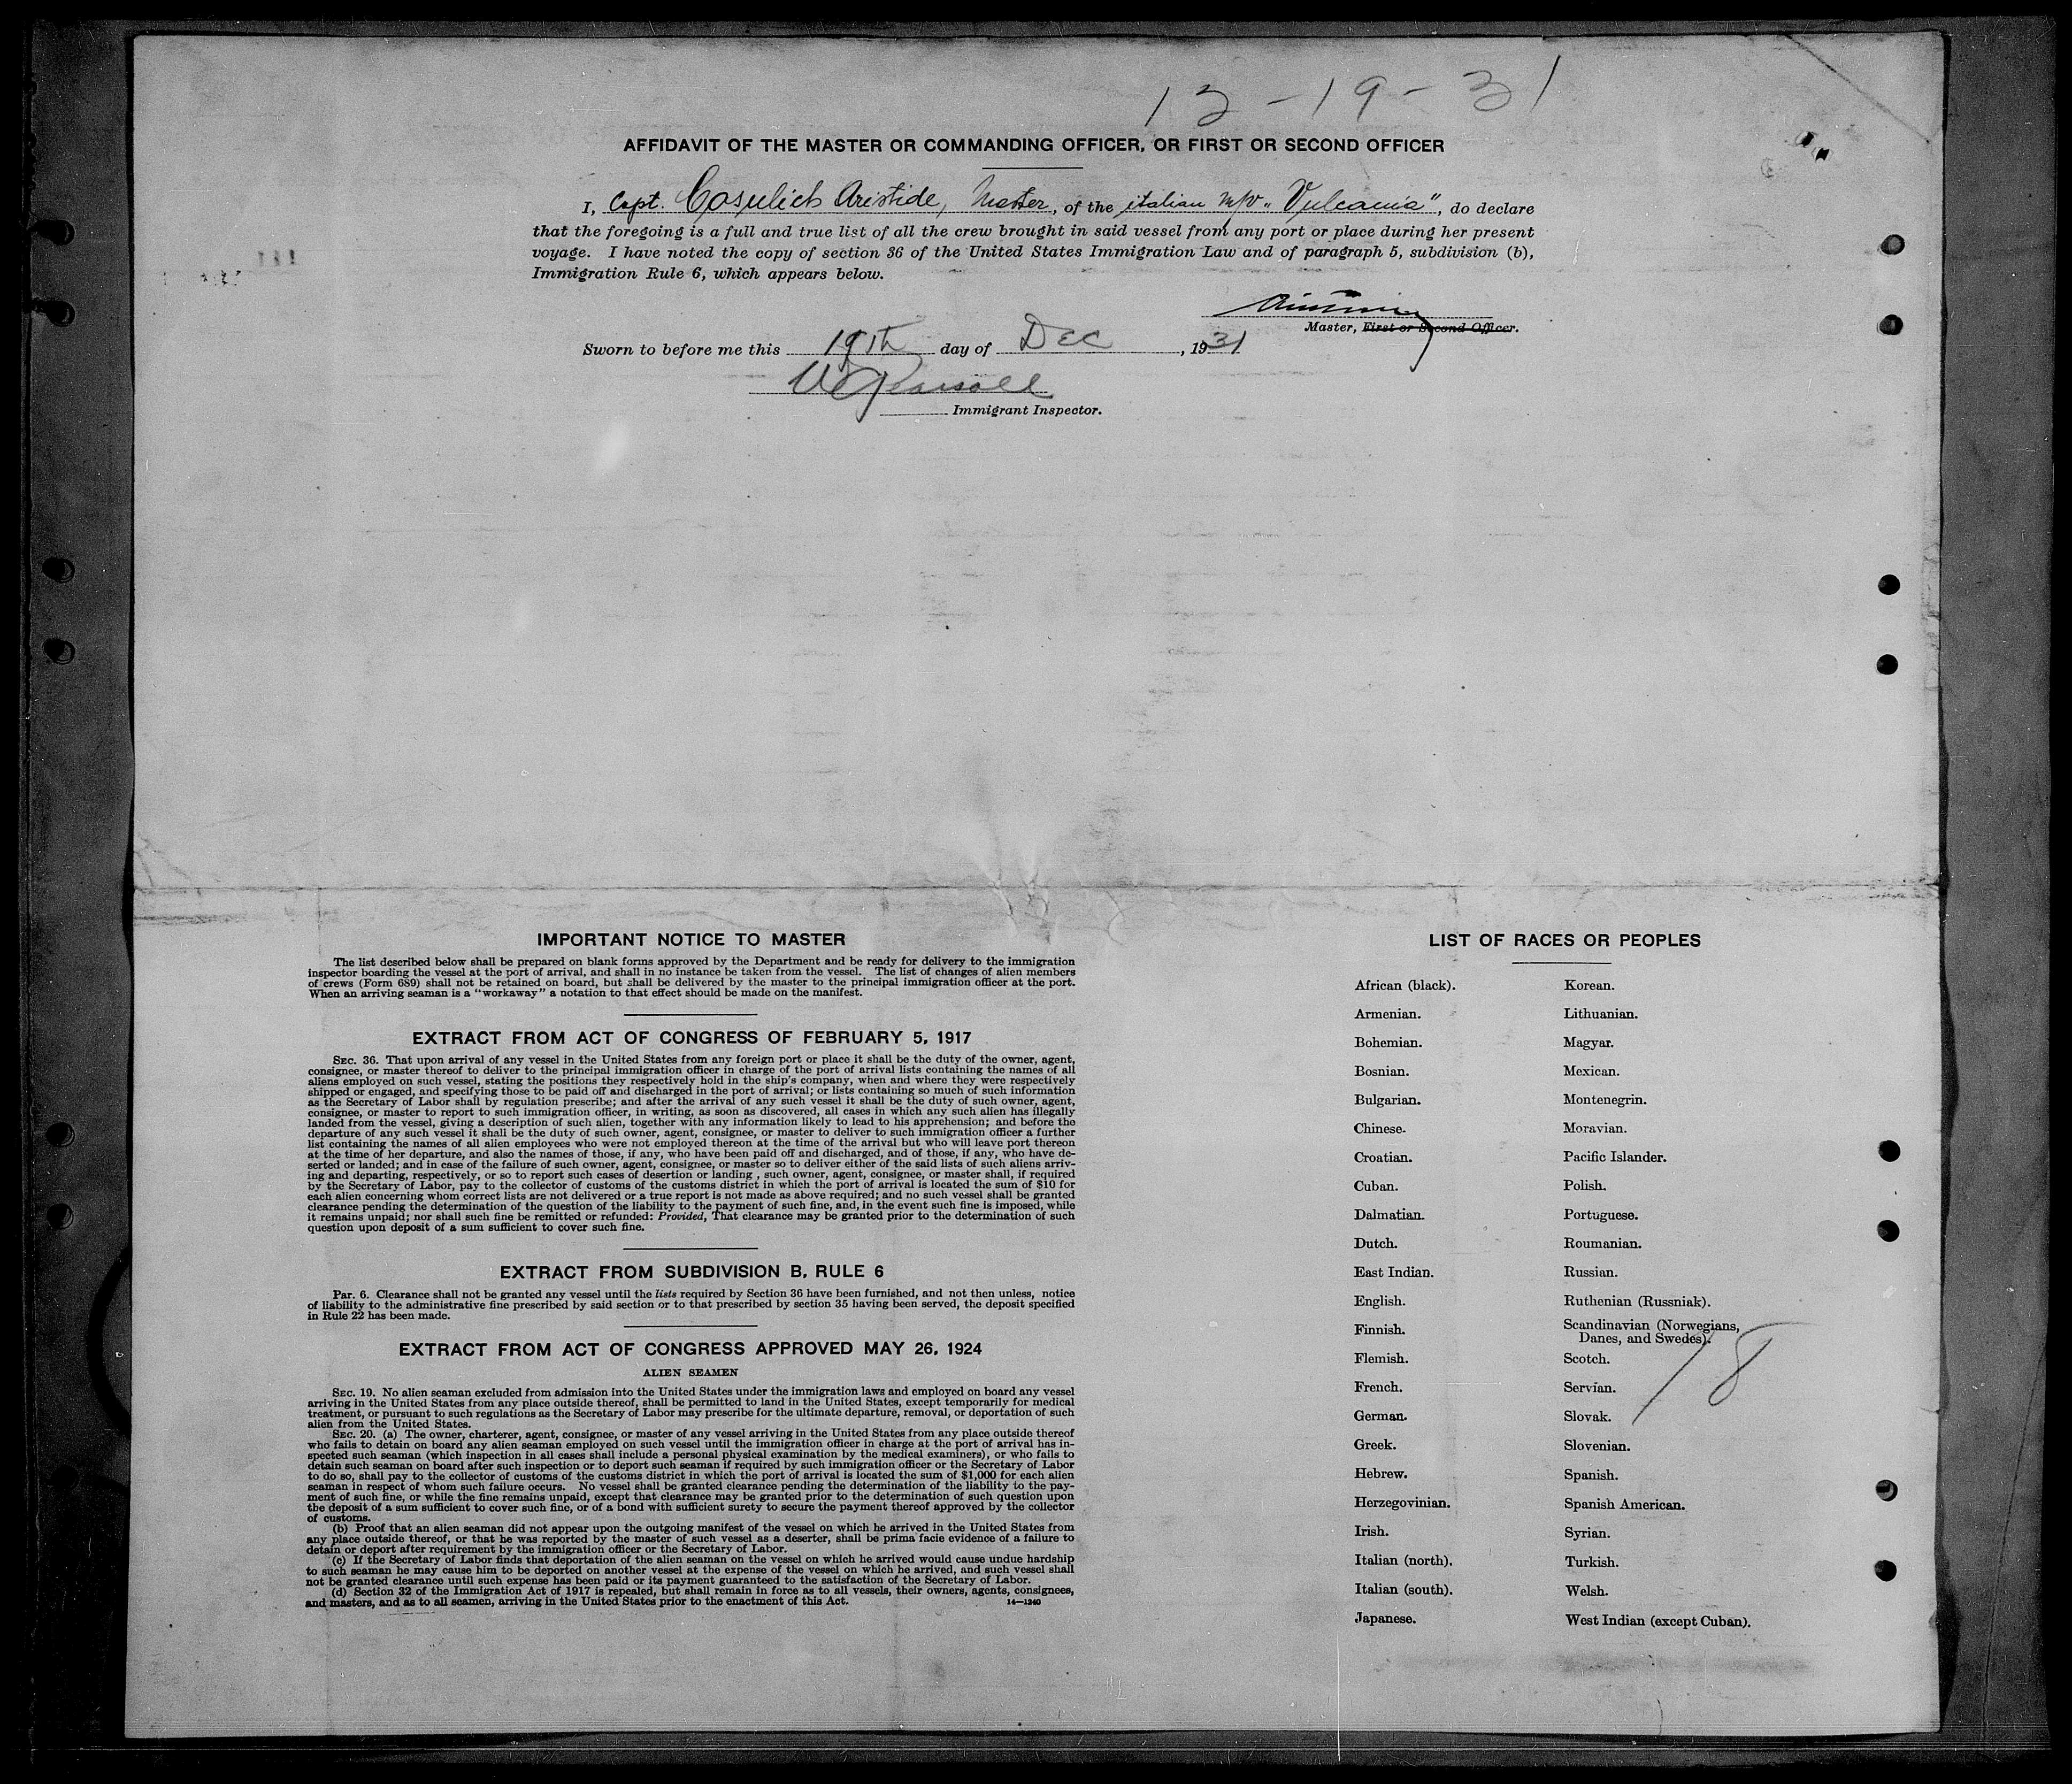 12-19-31
AFFIDAVIT OF THE MASTER OR COMMANDING OFFICER, OR FIRST OR SECOND OFFICER
I, Capt. Cosulich Aristide, Master, of the italian m/v „Vulcania", do declare
that the foregoing is a full and true list of all the crew brought in said vessel from any port or place during her present
voyage. I have noted the copy of section 36 of the United States Immigration Law and of paragraph 5, subdivision (b),
Immigration Rule 6, which appears below.
Master, First or Second Officer.
Sworn to before me this 19th day of Dec, 1931
Immigrant Inspector.
IMPORTANT NOTICE TO MASTER
The list described below shall be prepared on blank forms approved by the Department and be ready for delivery to the immigration
inspector boarding the vessel at the port of arrival, and shall in no instance be taken from the vessel. The list of changes of alien members
of crews (Form 689) shall not be retained on board, but shall be delivered by the master to the principal immigration officer at the port.
When an arriving seaman is a "workaway" a notation to that effect should be made on the manifest.
EXTRACT FROM ACT OF CONGRESS OF FEBRUARY 5, 1917
SEC. 36. That upon arrival of any vessel in the United States from any foreign port or place it shall be the duty of the owner, agent,
consignee, or master thereof to deliver to the principal immigration officer in charge of the port of arrival lists containing the names of all
aliens employed on such vessel, stating the positions they respectively hold in the ship's company, when and where they were respectively
shipped or engaged, and specifying those to be paid off and discharged in the port of arrival; or lists containing so much of such information
as the Secretary of Labor shall by regulation prescribe; and after the arrival of any such vessel it shall be the duty of such owner, agent,
consignee, or master to report to such immigration officer, in writing, as soon as discovered, all cases in which any such alien has illegally
landed from the vessel, giving a description of such alien, together with any information likely to lead to his apprehension; and before the
departure of any such vessel it shall be the duty of such owner, agent, consignee, or master to deliver to such immigration officer a further
list containing the names of all alien employees who were not employed thereon at the time of the arrival but who will leave port thereon
at the time of her departure, and also the names of those, if any, who have been paid off and discharged, and of those, if any, who have de-
serted or landed; and in case of the failure of such owner, agent, consignee, or master so to deliver either of the said lists of such aliens arriv-
ing and departing, respectively, or so to report such cases of desertion or landing, such owner, agent, consignee, or master shall, if required
by the Secretary of Labor, pay to the collector of customs of the customs district in which the port of arrival is located the sum of $10 for
each alien concerning whom correct lists are not delivered or a true report is not made as above required; and no such vessel shall be granted
clearance pending the determination of the question of the liability to the payment of such fine, and, in the event such fine is imposed, while
it remains unpaid; nor shall such fine be remitted or refunded: Provided, That clearance may be granted prior to the determination of such
question upon deposit of a sum sufficient to cover such fine.
EXTRACT FROM SUBDIVISION B, RULE 6
Par. 6. Clearance shall not be granted any vessel until the lists required by Section 36 have been furnished, and not then unless, notice
of liability to the administrative fine prescribed by said section or to that prescribed by section 35 having been served, the deposit specified
in Rule 22 has been made.
EXTRACT FROM ACT OF CONGRESS APPROVED MAY 26, 1924
ALIEN SEAMEN
SEC. 19. No alien seaman excluded from admission into the United States under the immigration laws and employed on board any vessel
arriving in the United States from any place outside thereof, shall be permitted to land in the United States, except temporarily for medical
treatment, or pursuant to such regulations as the Secretary of Labor may prescribe for the ultimate departure, removal, or deportation of such
alien from the United States.
SEC. 20. (a) The owner, charterer, agent, consignee, or master of any vessel arriving in the United States from any place outside thereof
who fails to detain on board any alien seaman employed on such vessel until the immigration officer in charge at the port of arrival has in-
spected such seaman (which inspection in all cases shall include a personal physical examination by the medical examiners), or who fails to
detain such seaman on board after such inspection or to deport such seaman if required by such immigration officer or the Secretary of Labor
to do so, shall pay to the collector of customs of the customs district in which the port of arrival is located the sum of $1,000 for each alien
seaman in respect of whom such failure occurs. No vessel shall be granted clearance pending the determination of the liability to the pay-
ment of such fine, or while the fine remains unpaid, except that clearance may be granted prior to the determination of such question upon
the deposit of a sum sufficient to cover such fine, or of a bond with sufficient surety to secure the payment thereof approved by the collector
of customs.
(b) Proof that an alien seaman did not appear upon the outgoing manifest of the vessel on which he arrived in the United States from
any place outside thereof, or that he was reported by the master of such vessel as a deserter, shall be prima facie evidence of a failure to
detain or deport after requirement by the immigration officer or the Secretary of Labor.
(c) If the Secretary of Labor finds that deportation of the alien seaman on the vessel on which he arrived would cause undue hardship
to such seaman he may cause him to be deported on another vessel at the expense of the vessel on which he arrived, and such vessel shall
not be granted clearance until such expense has been paid or its payment guaranteed to the satisfaction of the Secretary of Labor.
(d) Section 32 of the Immigration Act of 1917 is repealed, but shall remain in force as to all vessels, their owners, agents, consignees,
and masters, and as to all seamen, arriving in the United States prior to the enactment of this Act.
14—1240
LIST OF RACES OR PEOPLES
African (black).
Armenian.
Bohemian.
Bosnian.
Bulgarian.
Chinese.
Croatian.
Cuban.
Dalmatian.
Dutch.
East Indian.
English.
Finnish.
Flemish.
French.
German.
Greek.
Hebrew.
Herzegovinian.
Irish.
Italian (north).
Italian (south).
Japanese.
Korean.
Lithuanian.
Magyar.
Mexican.
Montenegrin.
Moravian.
Pacific Islander.
Polish.
Portuguese.
Roumanian.
Russian.
Ruthenian (Russniak).
Scandinavian (Norwegians,
Danes, and Swedes).
Scotch.
Servian.
Slovak.
Slovenian.
Spanish.
Spanish American.
Syrian.
Turkish.
Welsh.
West Indian (except Cuban).
18